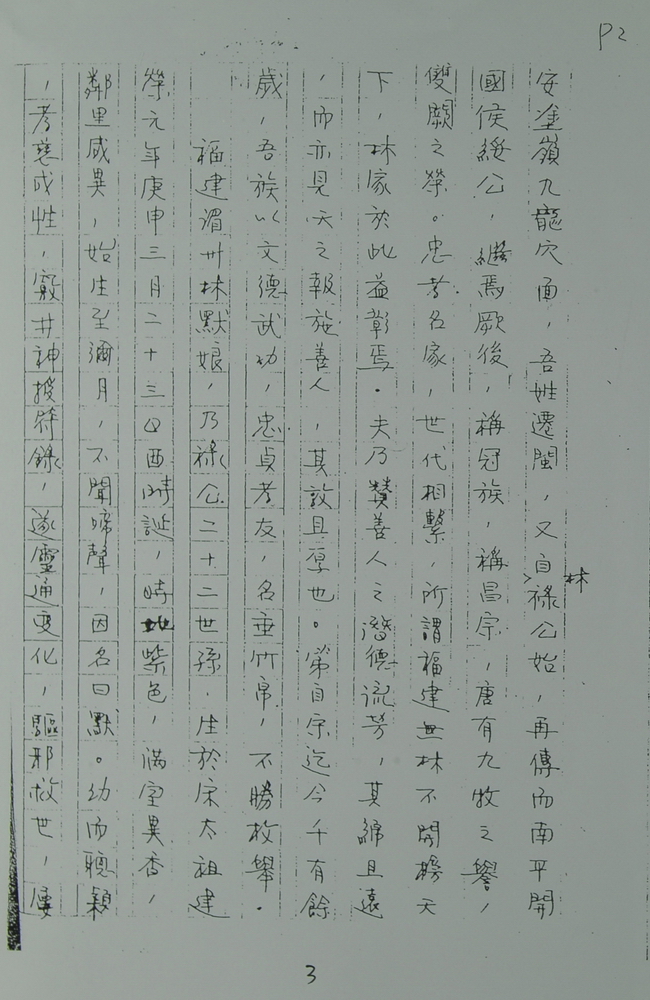 P2
安塗嶺九龍穴面，吾姓遷閩，又自林祿公始，再傳而南平開
國侯綏公，繼焉厥後，稱冠族，稱昌宗，唐有九牧之譽，
雙闕之榮。忠孝名家，世代相繫，所謂福建無林不開榜天
下，林家於此益彰焉．夫乃贊善人之潛德流芳，其綿且遠
，而亦見天之報施善人，其設且厚也。第自宗迄今千有餘
歲，吾族以文德武功，忠貞孝友，名垂竹帛，不勝枚舉．
福建湄卅林默娘，乃祿公二十二世孫．生於宋太祖建
榮元年庚申三月二十三日酉時誕，時地紫色，滿室異香，
鄰里咸異，始生至彌月，不聞啼聲，因名曰默。幼而聰穎
，孝慈成性，窺井神授符錄，遂靈通变化，驅邪救世，屢
3